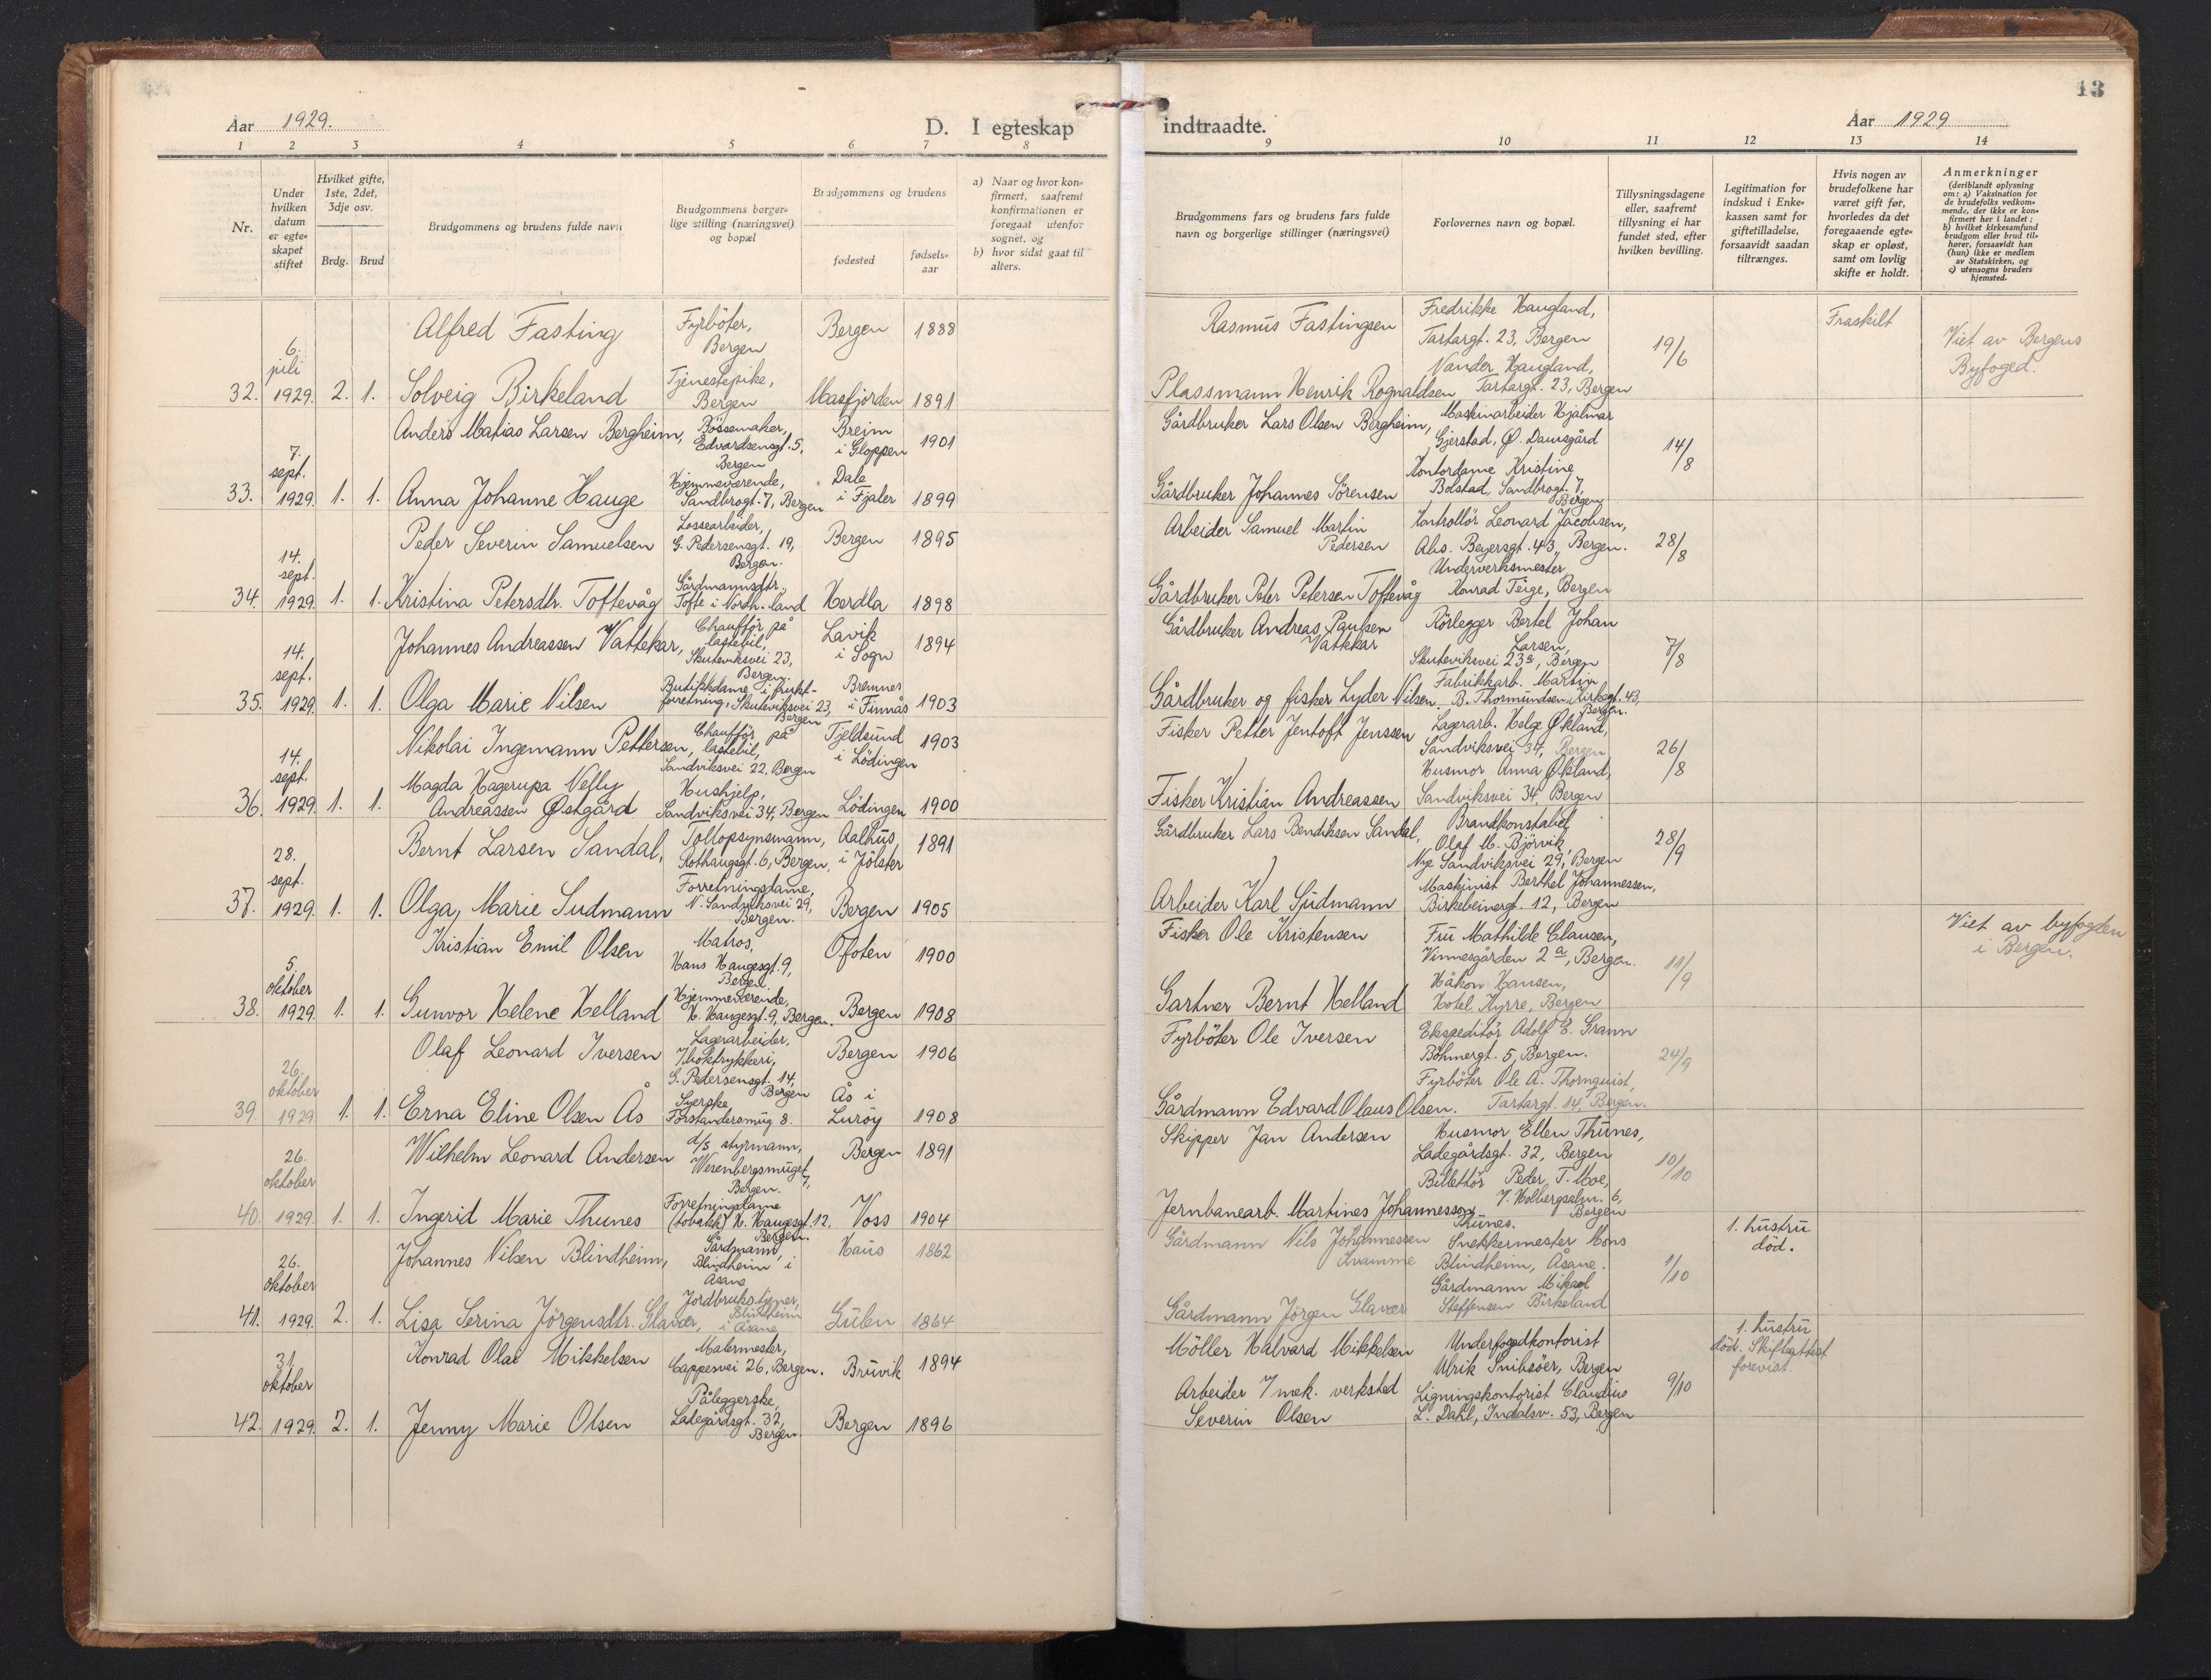 Aar 1929. D. I egteskap
1 2 3 4 5 6 7 8
Nr.
Under hvilken datum er egteskapet stiftet
Hvilket gifte, 1ste, 2det, 3dje osv.
Brdg. Brud
Brudgommens og brudens fulde navn
Brudgommens borgerlige stilling (næringsvei) og bopæl
Brudgommens og brudens
fødested
fødselsaar
a) Naar og hvor konfirmert, saafremt konfirmationen er foregaat utenfor sognet, og
b) hvor sidst gaat til alters.
32. 6. juli 1929. 2. 1.
Alfred Fasting
Fyrböter, Bergen
Bergen 1888
Solveig Birkeland
Tjenestepike, Bergen
Masfjorden 1891
33. 7. sept. 1929. 1. 1.
Anders Matias Larsen Bergheim,
Bössemaker, Edvardsensgt. 5, Bergen
Breim i Gloppen 1901
Anna Johanne Hauge
Hjemmeværende, Sandbrogt. 7, Bergen
Dale i Fjaler 1899
34. 14. sept. 1929. 1. 1.
Peder Severin Samuelsen
Lossearbeider, G. Pedersensgt. 19, Bergen.
Bergen 1895
Kristina Petersdtr. Toftevåg
Gårdmannsdtr., Tofte i Nordh.land
Herdla 1898
35. 14. sept. 1929. 1. 1.
Johannes Andreassen Vattekar,
Chaufför på lastebil, Skuteviksvei 23, Bergen.
Lavik i Sogn 1894
Olga Marie Nilsen
Butikkdame i frukt-
forretning, Skuteviksvei 23, Bergen
Bremnes i Finnås 1903
36. 14. sept. 1929. 1. 1.
Nikolai Ingemann Pettersen,
Chaufför på lastebil, Sandviksvei 22, Bergen
Tjeldsund i Lödingen 1903
Magda Hagerupa Nelly
Andreassen Østgård
Hushjelp, Sandviksvei 34, Bergen
Lödingen 1900
37. 28. sept. 1929. 1. 1.
Bernt Larsen Sandal,
Tollopsynsmann, Rothaugsgt. 6, Bergen,
Aalhus i Jölster 1891
Olga Marie Sudmann
Forretningsdame, N. Sandviksvei 29, Bergen.
Bergen 1905
38. 5. oktober 1929. 1. 1.
Kristian Emil Olsen
Matros, Hans Haugesgt. 9, Bergen.
Ofoten 1900
Gunvor Helene Helland
Hjemmeværende, H. Haugesgt. 9, Bergen.
Bergen 1908
39 26. oktober 1929 1. 1.
Olaf Leonard Iversen
Lagerarbeider, I boktrykkeri, G. Pedersensgt. 14, Bergen
Bergen 1906
Erna Eline Olsen Ås
Syerske Forstandersmüg 8.
Ås i Luröy 1908
40. 26. oktober 1929. 1. 1.
Wilhelm Leonard Andersen
d/s styrmann, Werenbergsmüget 7, Bergen.
Bergen 1891
Ingerid Marie Thunes
Forretningsdame (tobakk) H. Haugesgt. 12. Bergen.
Voss 1904
41. 26. oktober 1929. 2. 1.
Johannes Nilsen Blindheim,
Gårdmann, Blindheim i Åsane
Haus 1862
Lisa Serina Jörgensdtr. Glavær,
Jordbrukstjener, Blindheim i Åsane
Gulen 1864
42. 31. oktober 1929. 2. 1.
Konrad Olai Mikkelsen
Malermester, Cappesvei 26, Bergen.
Bruvik 1894
Jenny Marie Olsen
Påleggerske, Ladegårdsgt. 32, Bergen.
Bergen 1896
13
indtraadte. Aar 1929
9 10 11 12 13 14
Brudgommens fars og brudens fars fulde navn og borgerlige stillinger (næringsvei)
Forlovernes navn og bopæl.
Tillysningsdagene eller, saafremt tillysning ei har fundet sted, efter hvilken bevilling.
Legitimation for indskud i Enkekassen samt for giftetilladelse, forsaavidt saadan tiltrænges.
Hvis nogen av brudefolkene har været gift før, hvorledes da det foregaaende egteskap er opløst, samt om lovlig skifte er holdt.
Anmerkninger
(deriblandt oplysning om: a) Vaksination for de brudefolks vedkommende, der ikke er konfirmert her i landet; b) hvilket kirkesamfund brudgom eller brud tilhører, forsaavidt han (hun) ikke er medlem av Statskirken, og c) utensogns bruders hjemsted.
Rasmus Fastingsen
Fredrikke Haugland, Tartargt. 23, Bergen
Nander Haugland, Tartargt. 23, Bergen
19/6
Fraskilt
Viet av Bergens Byfoged.
Plassmann Henrik Rognaldsen
Gårdbruker Lars Olsen Bergheim,
Maskinarbeider Hjalmar Gjerstad, Ø. Damsgård
14/8
Gårdbruker Johannes Sörensen
Kontordame Kristine Bolstad, Sandbrogt. 7, Bergen
Arbeider Samuel Martin Pedersen
Kontrollör Leonard Jacobsen, Ahs. Beyersgt. 43, Bergen.
28/8
Gårdbruker Peter Petersen Toftevåg
Underverksmester Konrad Teige, Bergen
Gårdbruker Andreas Paulsen Vattekar
Rörlegger Bertel Johan Larsen, Skuteviksvei 23a, Bergen
7/8
Gårdbruker og fisker Lyder Nilsen
Fabrikkarb. Martin B. Thormundsen, Kirkegt. 43, Bergen.
Fisker Petter Jentoft Jenssen
Lagerarb. Helge Økland, Sandviksvei 34, Bergen
26/8
Fisker Kristian Andreassen
Husmor Anna Økland, Sandviksvei 34, Bergen
Gårdbruker Lars Bendiksen Sandal,
Brandkonstabel Olaf M. Björvik, Nye Sandviksvei 29, Bergen
28/9
Arbeider Karl Sudmann
Maskinist Berthel Johannessen, Birkebeinergt. 12, Bergen
Fisker Ole Kristensen
Fru Mathilde Clausen, Vinnesgården 2a, Bergen.
11/9
Viet av byfogden i Bergen.
Gartner Bernt Helland
Håkon Hansen, Hotel Kyrre, Bergen
Fyrböter Ole Iversen
Ekspeditör Adolf E. Grann Böhmergt. 5, Bergen.
24/9
Gårdmann Edvard Olaus Olsen.
Fyrböter Ole A. Thornquist, Tartargt. 14, Bergen.
Skipper Jan Andersen
Husmor Ellen Thunes, Ladegårdsgt. 32, Bergen
10/10
Jernbanearb. Martines Johannesson Thunes.
Billettör Peder T. Moe, I. Holbergsalm. 6, Bergen
Gårdmann Nils Johannessen Kvamme
Snekkermester Mons Blindheim, Åsane.
1/10
1. hustru död.
Gårdmann Jörgen Glavær
Gårdmann Mikael Steffensen Birkeland
Möller Halvard Mikkelsen
Underfogdkontorist Ulrik Snibsöer, Bergen
9/10
1. hustru död. Skifteattest forevist.
Arbeider I mek. verksted Severin Olsen
Ligningskontorist Claudius L. Dahl, Indalsv. 53, Bergen